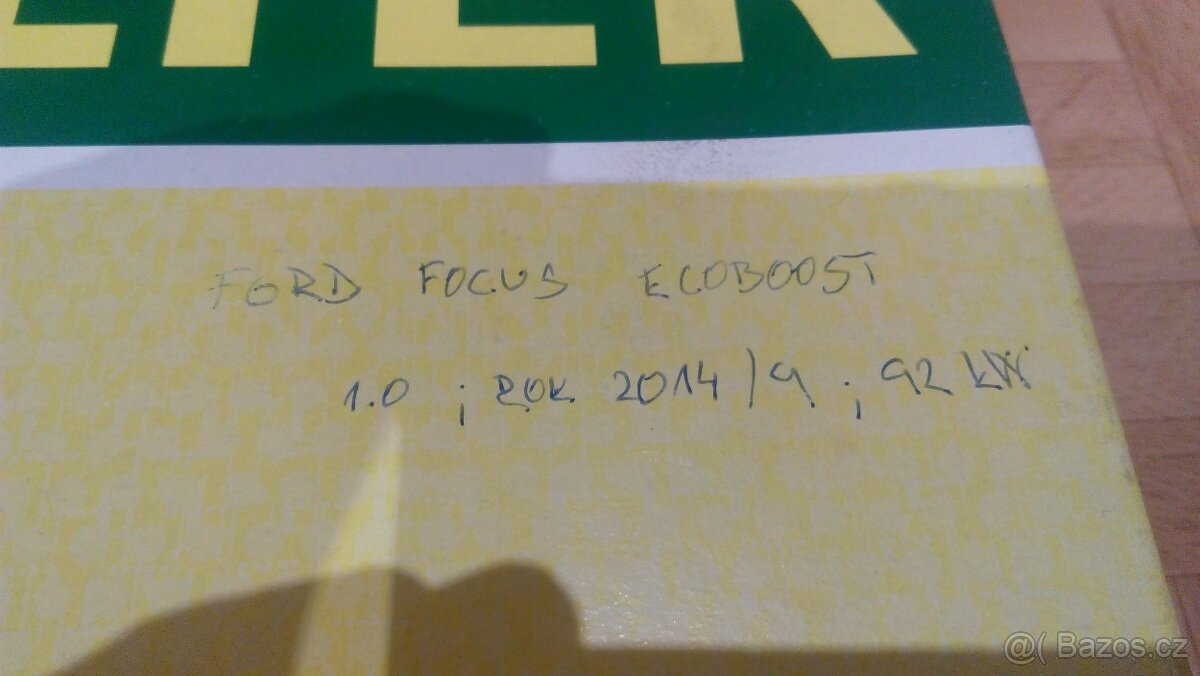 FORD FOCUS ECOBOOST
1.0 ; ROK 2014/9 ; 92 kW
@( Bazos.cz